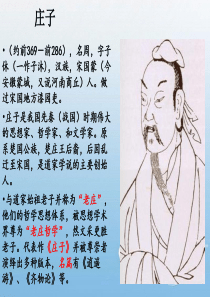 庄子
• （约前369—前286），名周，字子
休（一作子沐），汉族，宋国蒙（今
安徽蒙城，又说河南商丘）人。做
过宋国地方漆园吏。
• 庄子是我国先秦（战国）时期伟大
的思想家、哲学家、和文学家。原
系楚国公族，楚庄王后裔，后因乱
迁至宋国，是道家学说的主要创始
人。
• 与道家始祖老子并称为“老庄”，
他们的哲学思想体系，被思想学术
界尊为“老庄哲学”，然文采更胜
老子。代表作《庄子》并被尊崇者
演绎出多种版本，名篇有《逍遥
游》、《齐物论》等。